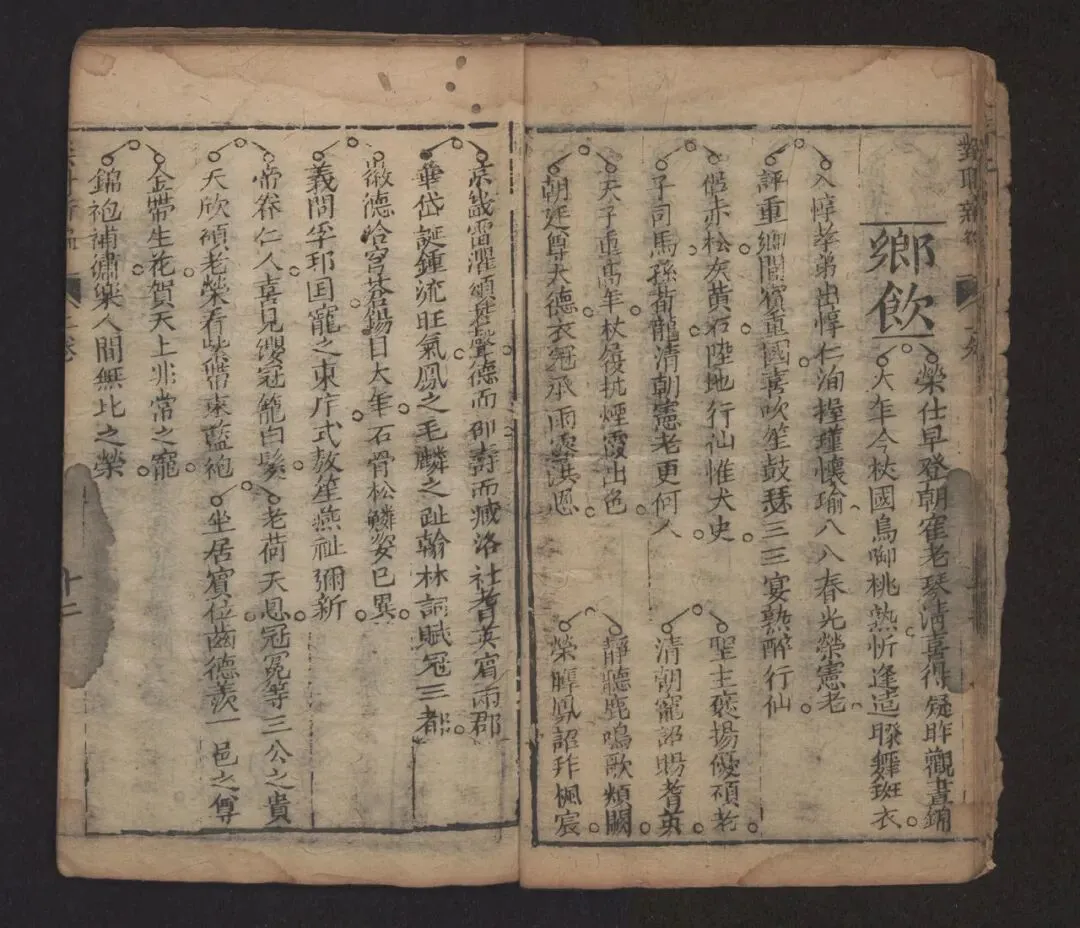 鄉飲
榮仕早登朝雀老琴清喜得疑眸觀晝錦
大年今杖國鳥啣桃熟忻逢造膝舞斑衣
入惇孝弟出惇仁洵握瑾懷瑜八八春光榮憲老
評重鄉閭賓重國喜吹笙鼓瑟三三宴熟醉行仙
偓赤松友黃石陸地行仙惟太史
子司馬孫荀龍清朝憲老更何人
天子重高年杖屨抗煙霞出色
朝廷尊大德衣冠承雨露洪恩
聖主褒揚優碩老
清朝寵詔賜耆英
靜聽鹿鳴歌頖闕
榮膺鳳詔拜楓宸
京畿雷濯頌聲德而卲壽而臧洛社耆英賓兩郡
華岱誕鍾流旺氣鳳之毛麟之趾翰林詞賦冠三都
徽德合穹蒼錫日大年石骨松鱗姿已異
義問孚国寵之東序式敖笙燕祉彌新
帝眷仁人喜見纓冠籠白髮
天欣碩老榮看紫帶束藍袍
老荷天恩冠冕等三公之貴
坐居賓位齒德羨一邑之尊
金帶生花賀天上非常之寵
錦袍補繡樂人間無比之榮
十二